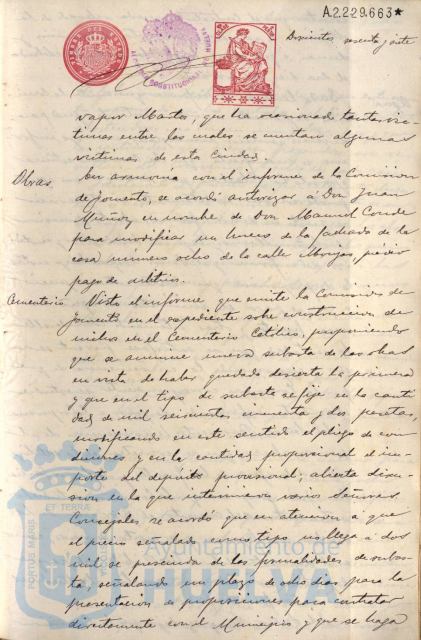 A2.229.663*
Doscientos sesenta y siete
vapor Martos, que ha ocasionado tantas víc-
timas entre las cuales se cuentan algunas
victimas de esta Ciudad.
Obras. En armonia con el informe de la Comision
de fomento, se acordó autorizar á Don Juan
Muñoz en nombre de Don Manuel Conde
para modificar un hueco de la fachada de la
casa numero ocho de la calle Monjas, previo
pago de arbitrios.
Cementerio. Visto el informe que emite la Comision de
fomento en el expediente sobre construccion de
nichos en el Cementerio Católico, proponiendo
que se anuncie nueva subasta de las obras
en vista de haber quedado desierta la primera
y que en el tipo de subasta se fije en la canti
dad de mil seiscientas cincuenta y dos pesetas,
modificando en este sentido el pliego de con
diciones y en la cantidad proporcional el im-
porte del depósito provisional; abierta discu-
sion en la que intervienen varios Señores
Concejales se acordó que en atencion á que
el precio señalado como tipo no llega á dos
mil se prescinda de las formalidades de subas-
ta, señalando un plazo de ocho dias para la
presentacion de proposiciones para contratar
directamente con el Municipio y que se haga
PORTUS MARIS ET TERRAE
Ayuntamiento de
HUELVA